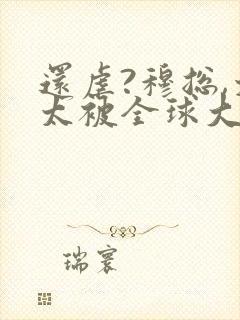 還虐?穆总,
太被全球大
瑞寰